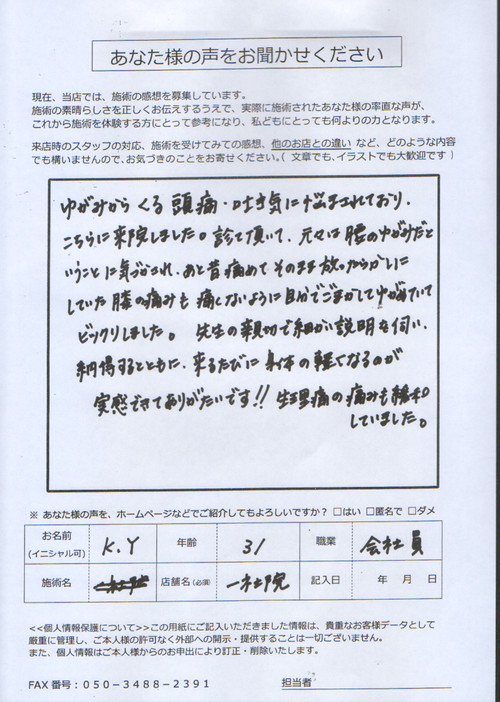 あなた様の声をお聞かせください
現在、当店では、施術の感想を募集しています。
施術の素晴らしさを正しくお伝えするうえで、実際に施術されたあなた様の率直な声が、
これから施術を体験する方にとって参考になり、私どもにとっても何よりの力となります。
来店時のスタッフの対応、施術を受けてみての感想、他のお店との違い など、どのような内容
でも構いませんので、お気づきのことをお寄せください。（ 文章でも、イラストでも大歓迎です ）
ゆがみからくる頭痛・吐き気に悩まされており、
こちらに来院しました。診て頂いて、元々は腰のゆがみだと
いうことに気づかされ、あと昔痛めてそのまま放ったらかしに
していた膝の痛みも痛くないように自分でごまかしてゆがめていて
ビックリしました。先生の親切で細かい説明を伺い、
納得するとともに、来るたびに身体の軽くなるのが
実感できてありがたいです!! 生理痛の痛みも緩和
していました。
※ あなた様の声を、ホームページなどでご紹介してもよろしいですか？ □はい □匿名で □ダメ
お名前 (イニシャル可) K.Y 年齢 31 職業 会社員
施術名 店舗名 (必須) 一社院 記入日 年 月 日
<<個人情報保護について>>この用紙にご記入いただきました情報は、貴重なお客様データとして
厳重に管理し、ご本人様の許可なく外部への開示・提供することは一切ございません。
また、個人情報はご本人様からのお申出により訂正・削除いたします。
FAX 番号：050－3488－2391 担当者